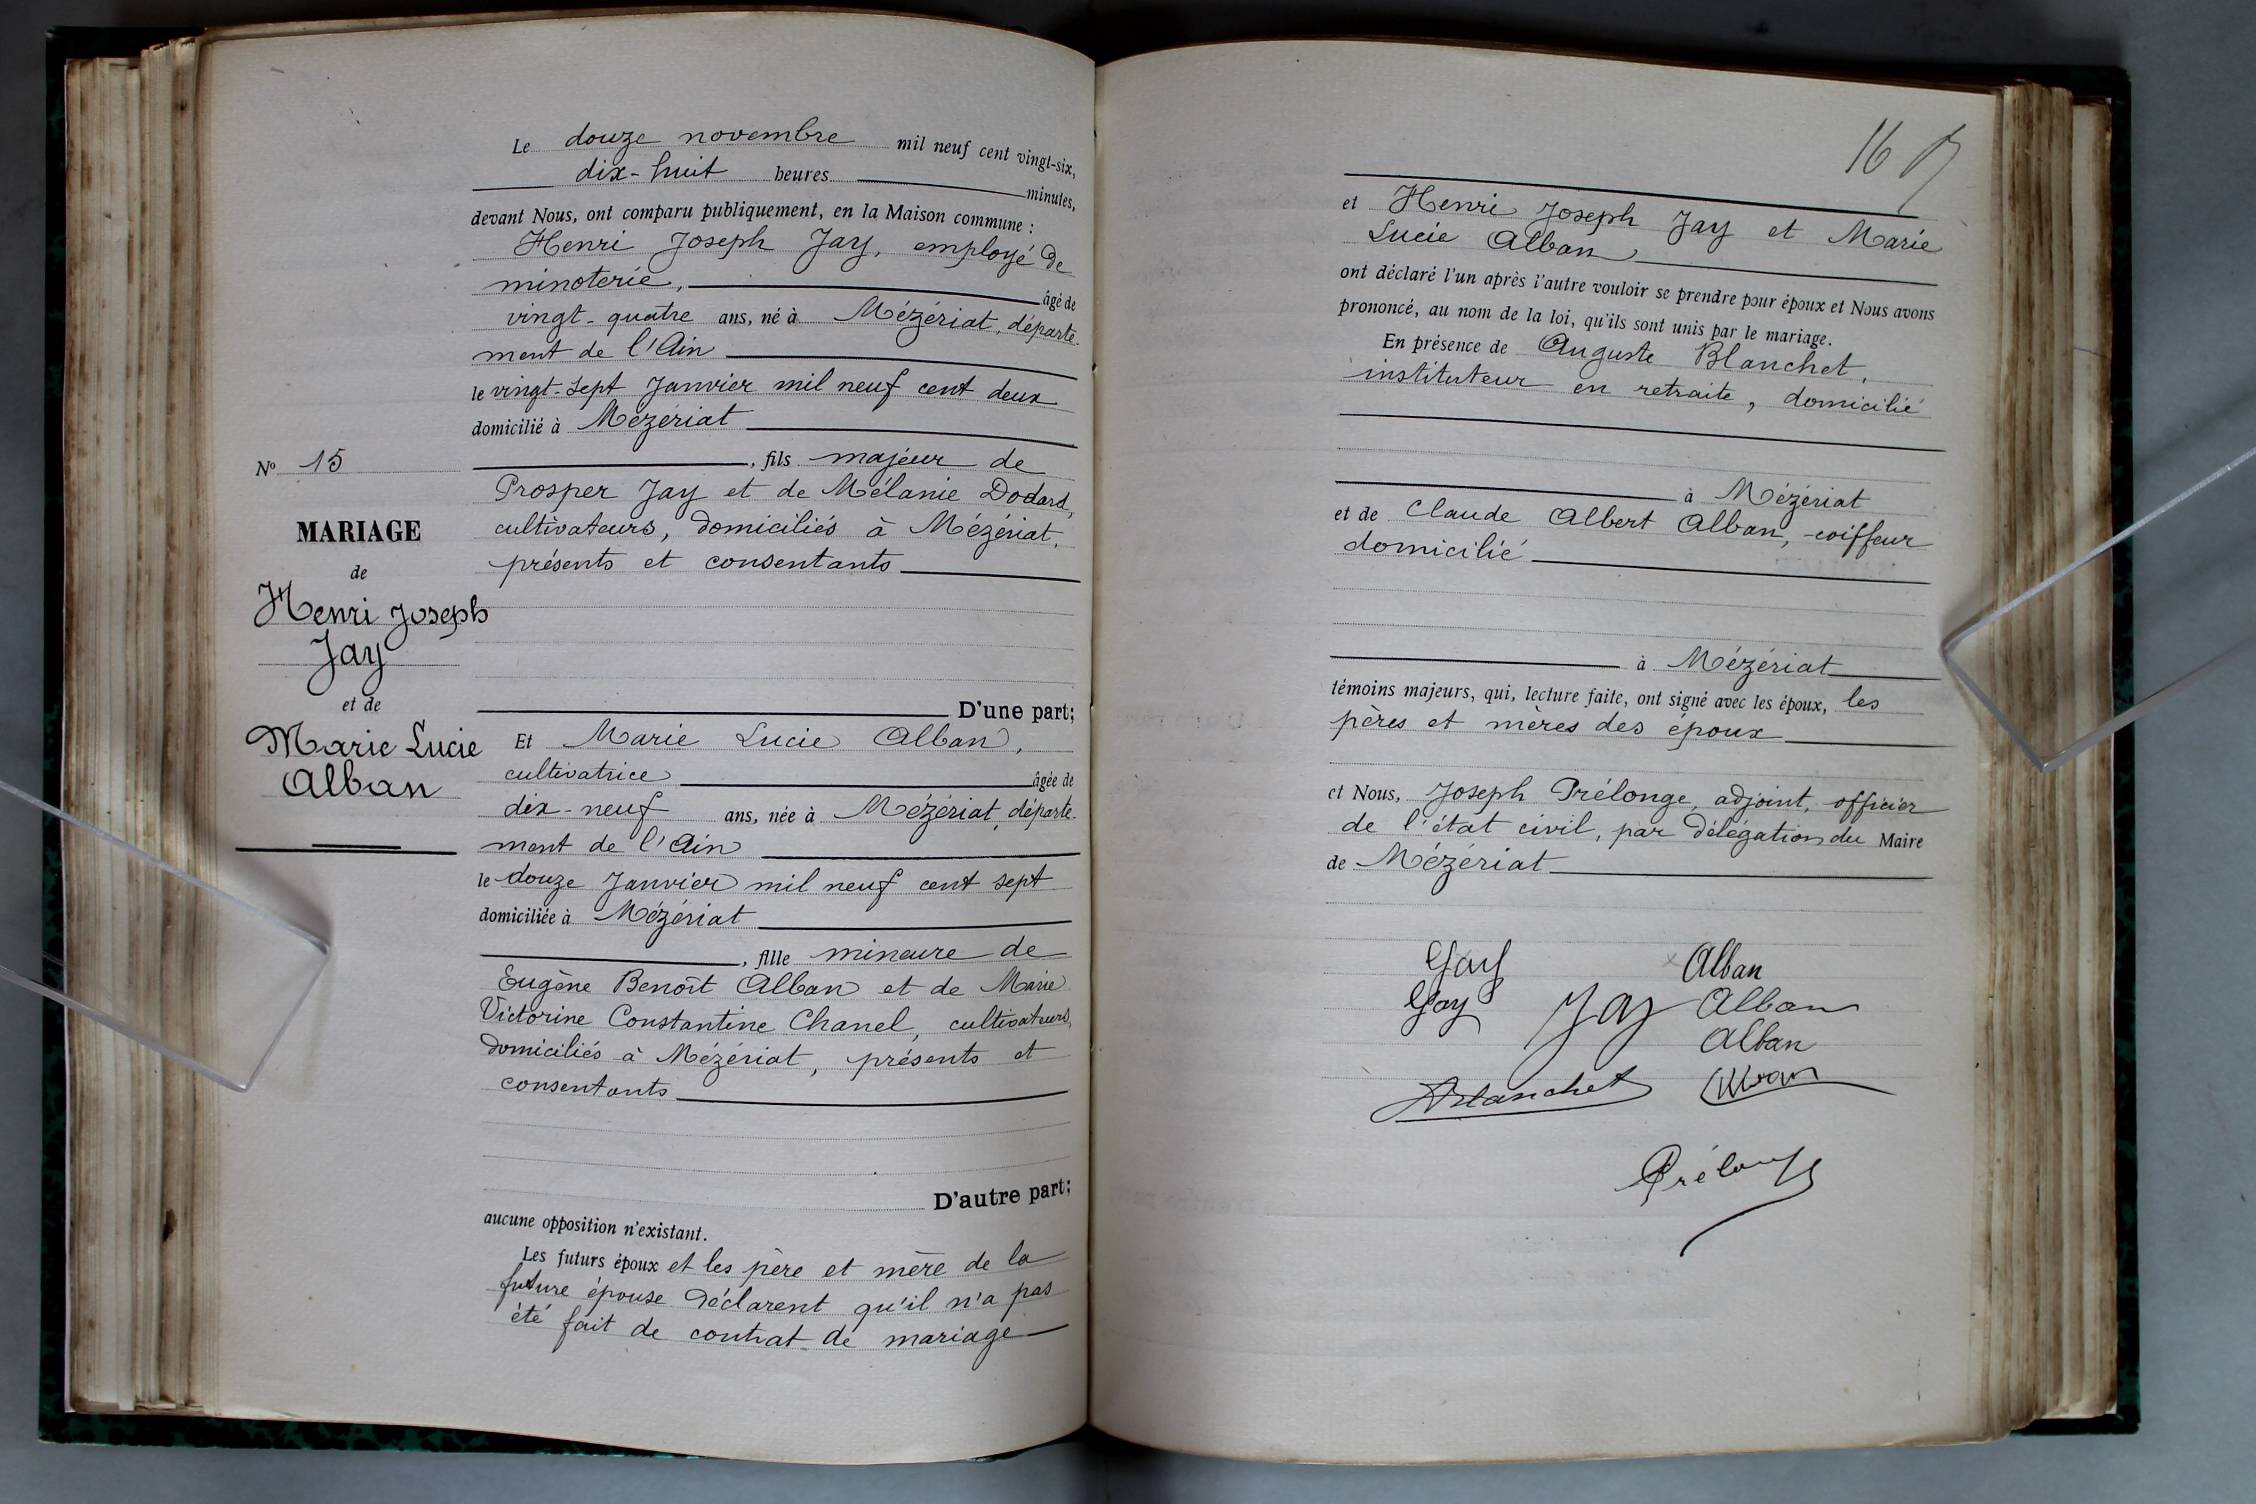 Le douze novembre mil neuf cent vingt-six,
dix-huit heures minutes,
devant Nous, ont comparu publiquement, en la Maison commune :
Henri Joseph Jay, employé de
minoterie, âgé de
vingt-quatre ans, né à Mézériat, départe-
ment de l'Ain
le vingt-sept Janvier mil neuf cent deux
domicilié à Mézériat
, fils majeur de
Prosper Jay et de Mélanie Dodard,
cultivateurs, domiciliés à Mézériat,
présents et consentants
D'une part;
No 15
MARIAGE
de
Henri Joseph
Jay
et de
Marie Lucie
Alban
Et Marie Lucie Alban,
cultivatrice âgée de
dix-neuf ans, née à Mézériat, départe-
ment de l'Ain
le douze Janvier mil neuf cent sept
domiciliée à Mézériat
, fille mineure de
Eugène Benoît Alban et de Marie
Victorine Constantine Chanel, cultivateurs,
domiciliés à Mézériat, présents et
consentants
D'autre part;
aucune opposition n'existant.
Les futurs époux et les père et mère de la
future épouse déclarent qu'il n'a pas
été fait de contrat de mariage
16
et Henri Joseph Jay et Marie
Lucie Alban
ont déclaré l'un après l'autre vouloir se prendre pour époux et Nous avons
prononcé, au nom de la loi, qu'ils sont unis par le mariage.
En présence de Auguste Blanchet,
instituteur en retraite, domicilié
à Mézériat
et de Claude Albert Alban, coiffeur
domicilié
à Mézériat
témoins majeurs, qui, lecture faite, ont signé avec les époux, les
pères et mères des époux
et Nous, Joseph Prélonge, adjoint, officier
de l'état civil, par délégation du Maire
de Mézériat
Jay Alban
Jay Jay Alban
Alban
Blanchet Alban
Prélonge